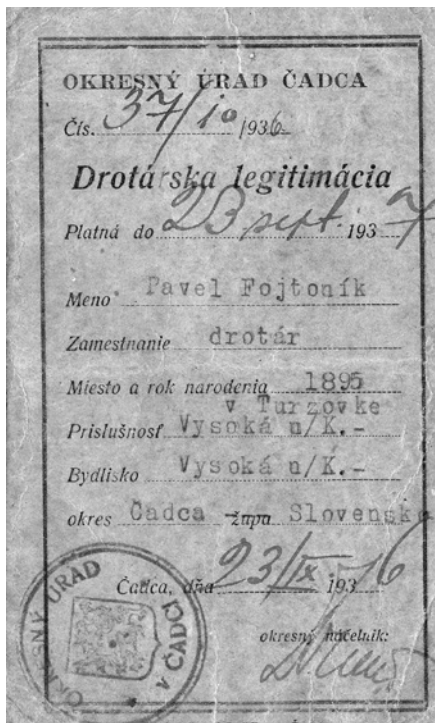 OKRESNÝ ÚRAD ČADCA
Čís. 37/10 /1936
Drotárska legitimácia
Platná do 23 sept. 1937
Meno Pavel Fojtoník
Zamestnanie drotár
Miesto a rok narodenia 1895
v Turzovke
Príslušnosť Vysoká n/K.-
Bydlisko Vysoká n/K.-
okres Čadca župa Slovensko
Čadca, dňa 23/IX 1936
okresný náčelník:
OKRESNÝ ÚRAD V ČADCI